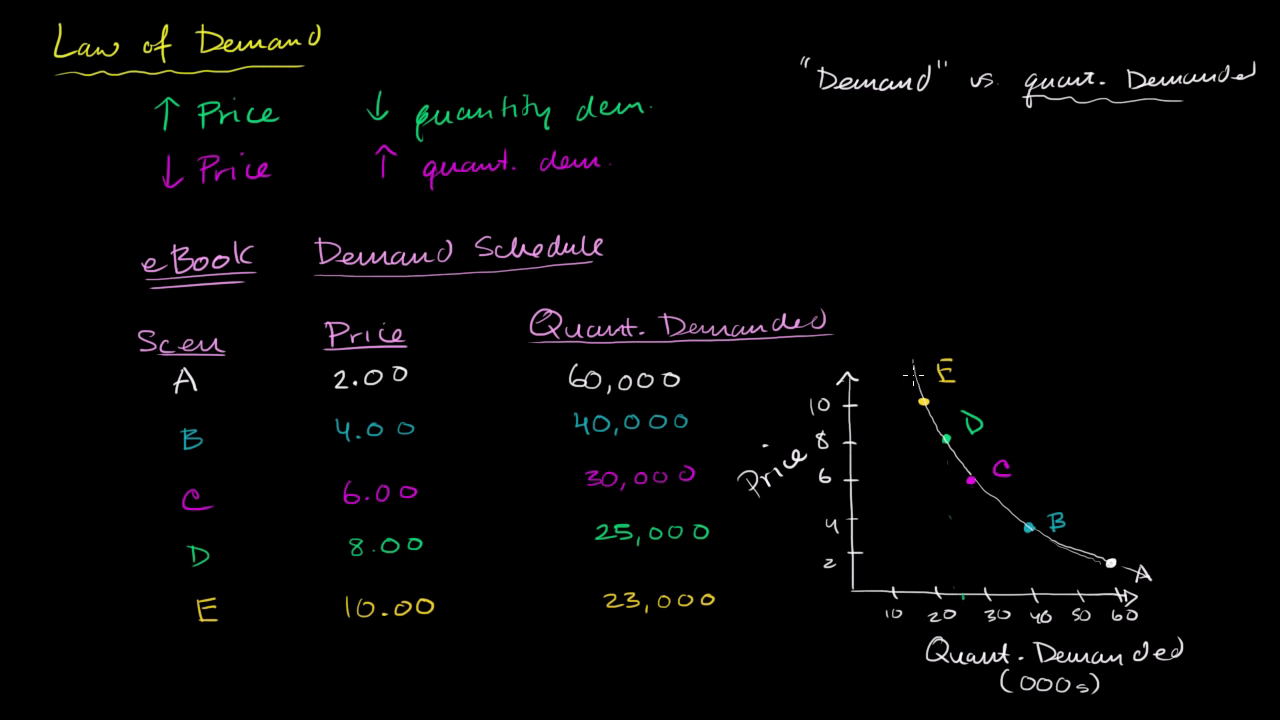 Law of Demand
"Demand" vs. quant. Demanded
↑ Price ↓ quantity dem.
↓ Price ↑ quant. dem.
eBook Demand Schedule
Scen Price Quant. Demanded
A 2.00 60,000
B 4.00 40,000
C 6.00 30,000
D 8.00 25,000
E 10.00 23,000
E
D
C
B
A
Price
10
8
6
4
2
10 20 30 40 50 60
Quant. Demanded
(000s)